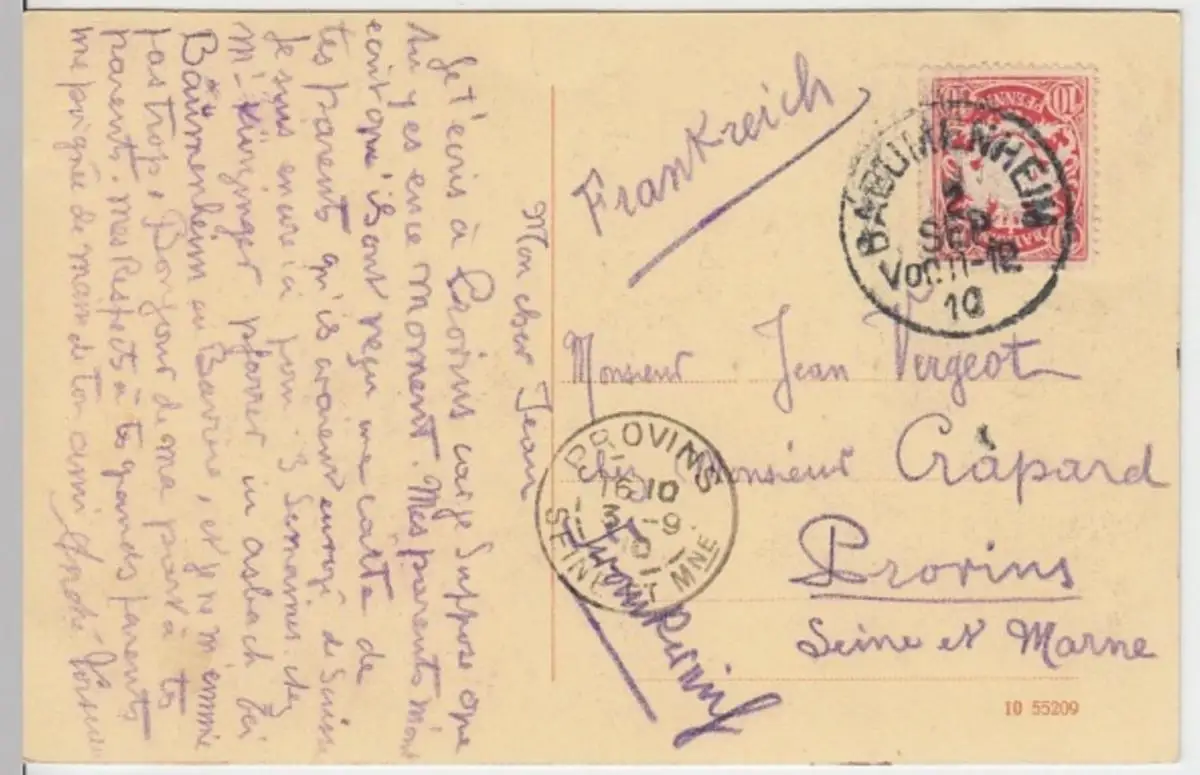 Mon cher Jean
Je t'écris à Provins car je suppose que
tu y es en ce moment. Mes parents m'ont
écrit qu'ils ont reçu une carte de
tes parents qu'ils avaient envoyé de Suisse
Je suis encore ici pour 3 Semaines chez
Mr Kiringer pfarrer in asbach bei
Bäumenheim en Bavière, et je ne m'ennuie
pas trop. Bonjour de ma part à tes
parents. Mes Respects à tes grands parents
une poignée de main de ton ami André
Frankreich
10 PFENNIG 10
BAYERN
BAEUMENHEIM
2
SEP
Vor. 11-12
10
Monsieur Jean Vergeot
Chez Monsieur Crapard
Provins
Seine et Marne
PROVINS
16 10
3 -9
10
SEINE ET MNE
Frankreich
10 55209